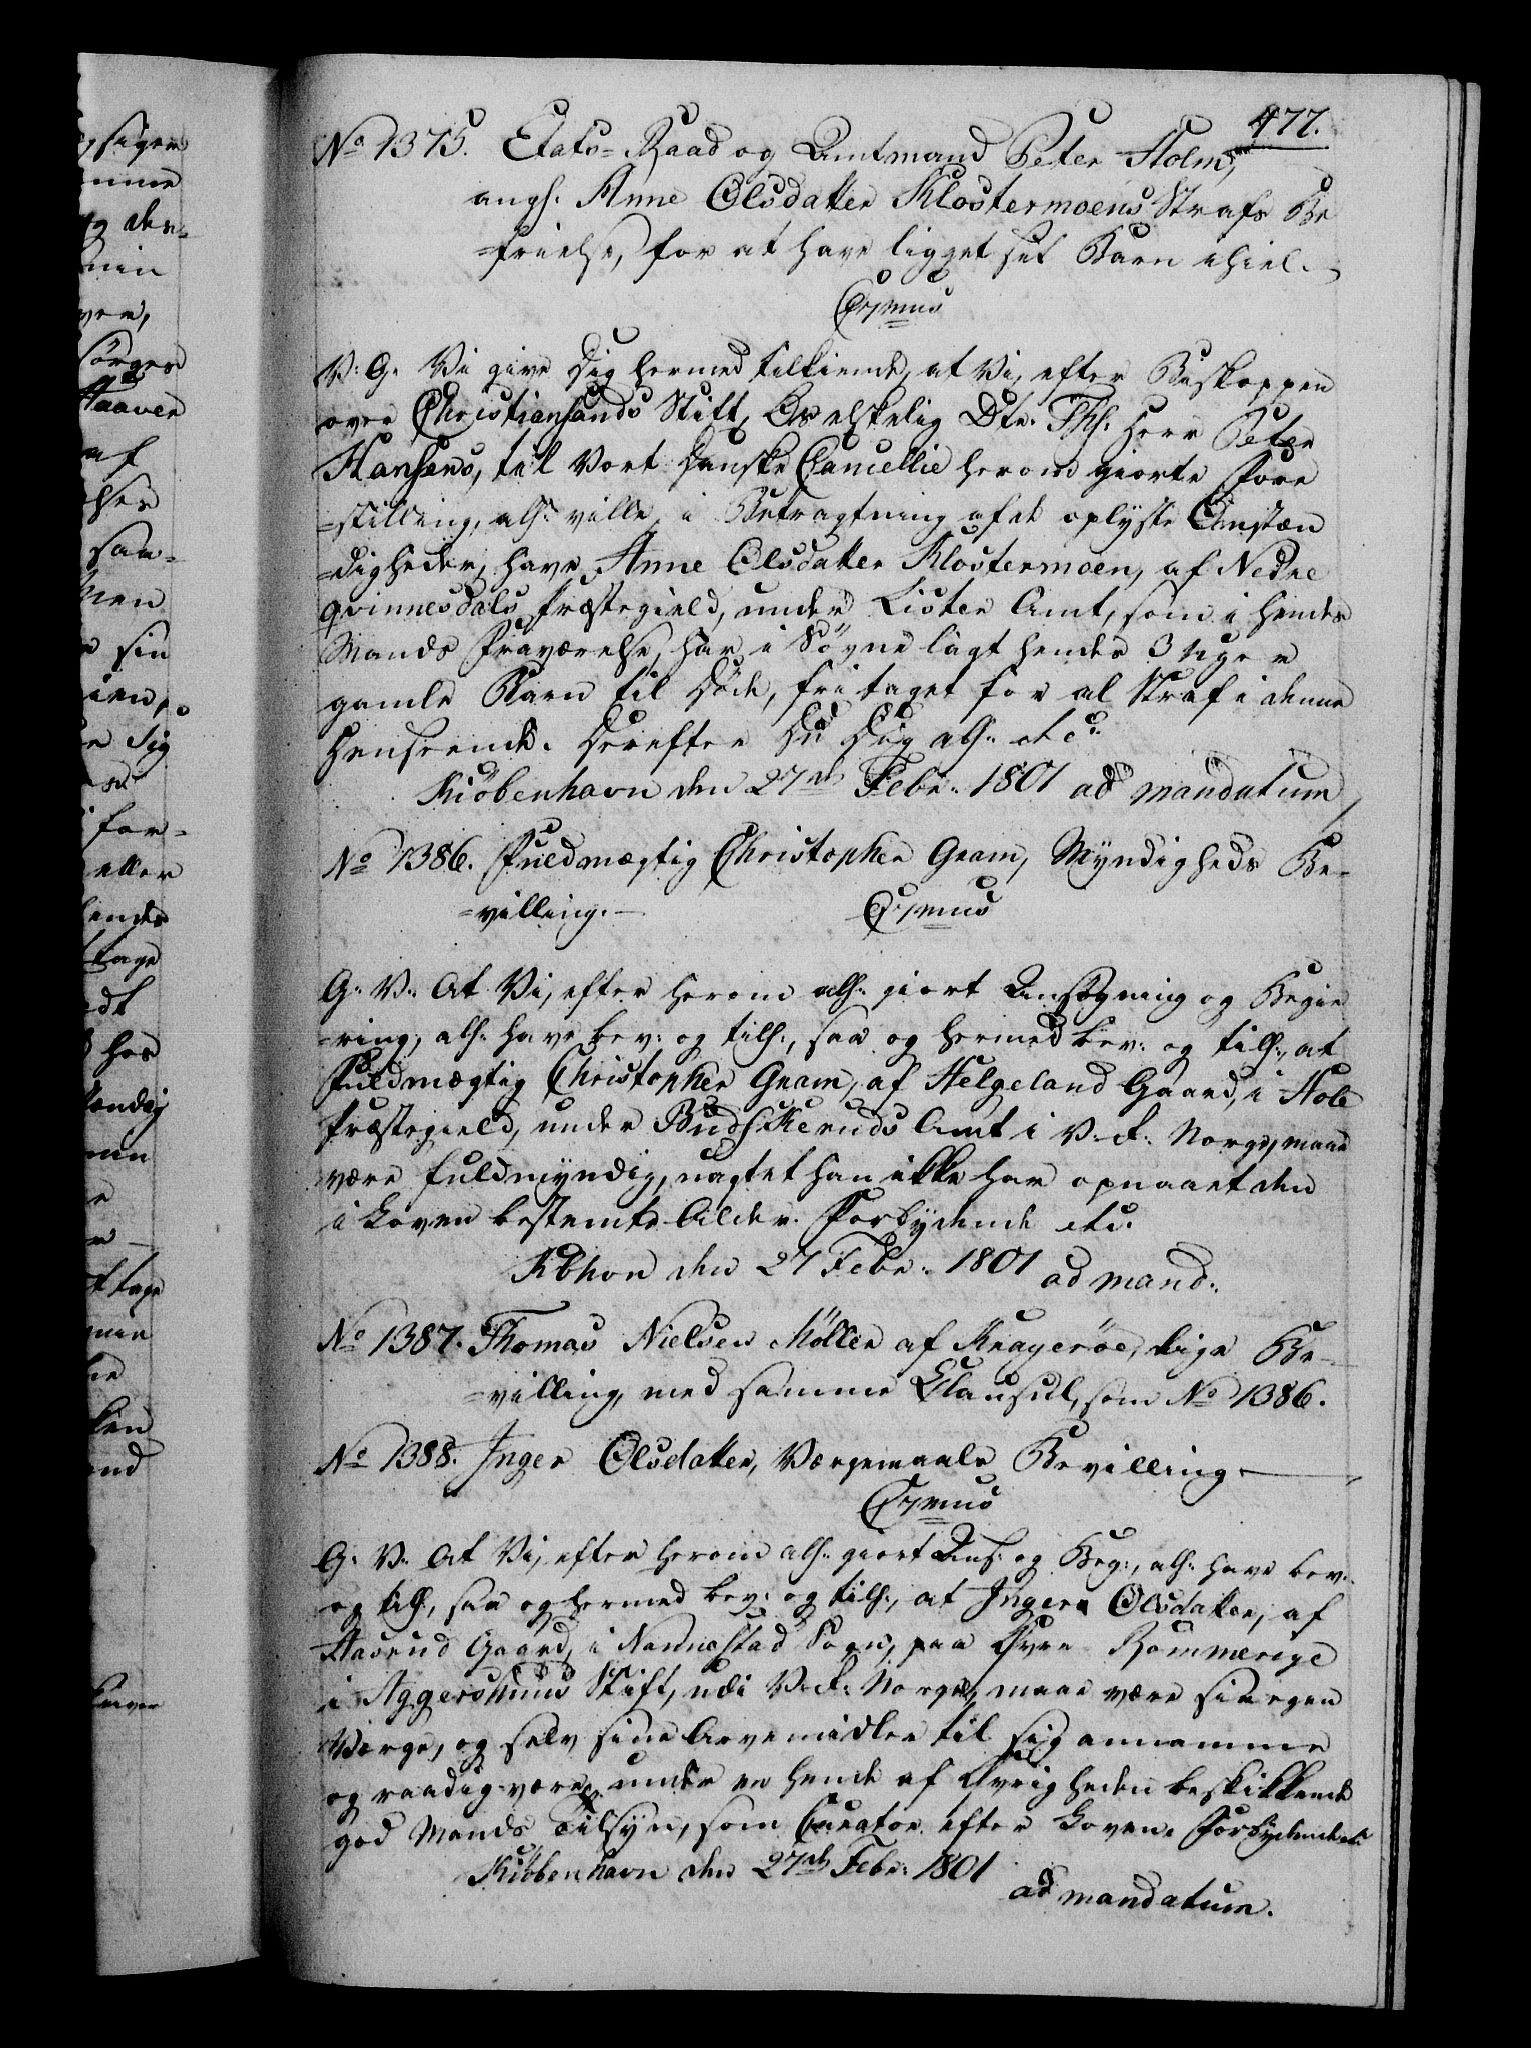 477.
No 1375. Etats-Raad og Amtmand Peter Holm,
angs. Anne Olsdatter Klostermoens Strafs Be
=frielse, for at have ligget sit Barn ihiel.
C7mus
V: G. Vi give Dig hermed tilkiende, at Vi, efter Biskoppen
over Christiansands Stift, Os elskelig Dtr. Th. Herr Peter
Hansens, til Vort Danske Cancellie herom giorte Fore
=stilling, alls. ville, i Betragtning af de oplyste Omstæn
=digheder, have Anne Olsdatter Klostermoen, af Nedre
Qvinnesdals Præstegield, under Lister Amt, som i hendes
Mands Fraværelse, har i Søvne lagt hendes 3 Uger
gamle Barn til Døde, fritaget for al Straf i denne
Henseende. Derefter Du Dig alls. etc.
Kiöbenhavn den 27de Febr. 1801 ad mandatum
No 1386. Fuldmægtig Christopher Gram, Myndigheds Be-
=villing.- C7mus
G: V: At Vi, efter herom alls. giort Ansøgning og Begie
=ring, alls. have bev: og tills:, saa og hermed bev: og tills:, at
Fuldmægtig Christopher Gram, af Helgeland Gaard, i Hole
Præstegield, under Budskeruds Amt i V. R. Norge, maae
være fuldmyndig, uagtet han ikke har opnaaet den
i Loven bestemte Alder. Forbydende etc.
Kbhvn den 27 Febr. 1801 ad mand:
No 1387. Thomas Nielsen Möller af Kragerøe, lige Be-
=villing, med samme Clausul, som No 1386.
No 1388. Inger Olsdatter, Værgemaals Bevilling.
C7mus
G: V: At Vi, efter herom alls. giort Ans. og Beg:, alls. have bev:
og tills, saa og hermed bev: og tills:, at Inger Olsdatter, af
Aaserud Gaard, i Nannestad Sogn, paa Øvre Rommerige
i Aggershuus Stift, udi V. R. Norge, maae være sin egen
Værge, og selv sine Arvemidler til sig annamme
og raadig være, under en hende af Øvrigheden beskikkende
god Mands Tilsyn, som Curator efter Loven. Forbydende etc.
Kiöbenhavn den 27de Febr: 1801
ad mandatum.